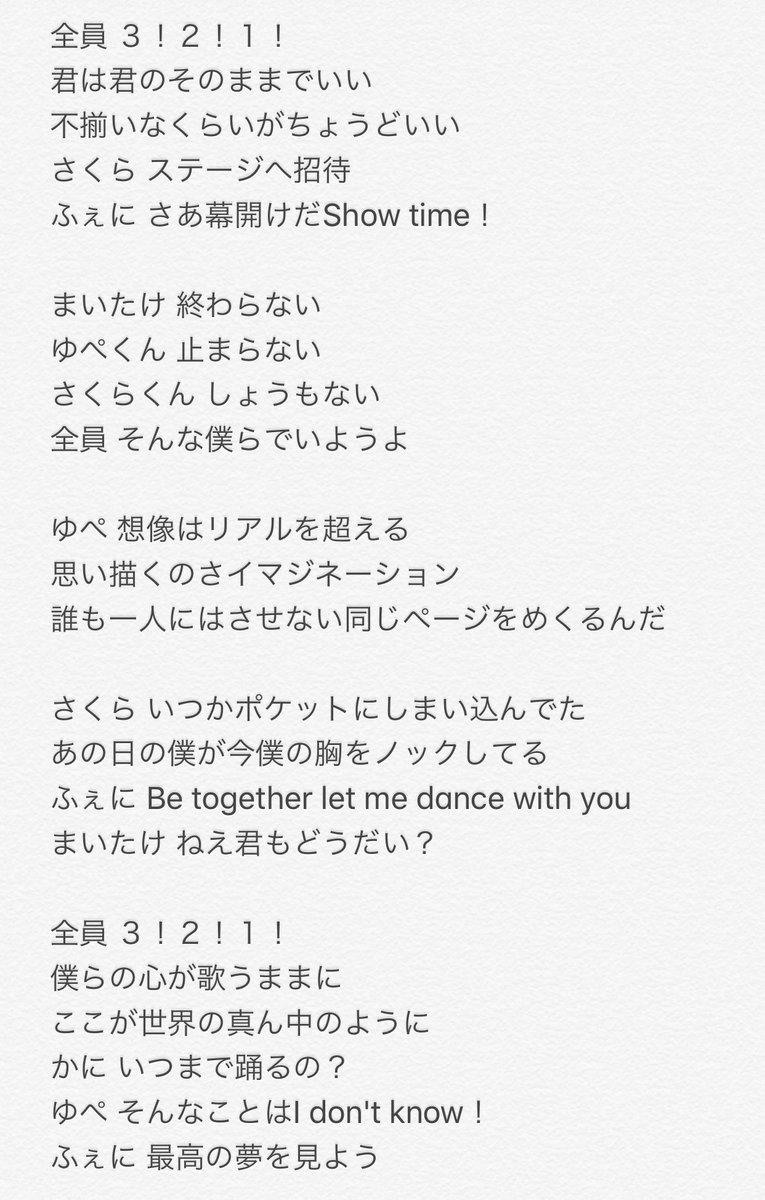 全員 ３！２！１！
君は君のそのままでいい
不揃いなくらいがちょうどいい
さくら ステージへ招待
ふぇに さあ幕開けだShow time！
まいたけ 終わらない
ゆぺくん 止まらない
さくらくん しょうもない
全員 そんな僕らでいようよ
ゆぺ 想像はリアルを超える
思い描くのさイマジネーション
誰も一人にはさせない同じページをめくるんだ
さくら いつかポケットにしまい込んでた
あの日の僕が今僕の胸をノックしてる
ふぇに Be together let me dance with you
まいたけ ねえ君もどうだい？
全員 ３！２！１！
僕らの心が歌うままに
ここが世界の真ん中のように
かに いつまで踊るの？
ゆぺ そんなことはI don't know！
ふぇに 最高の夢を見よう